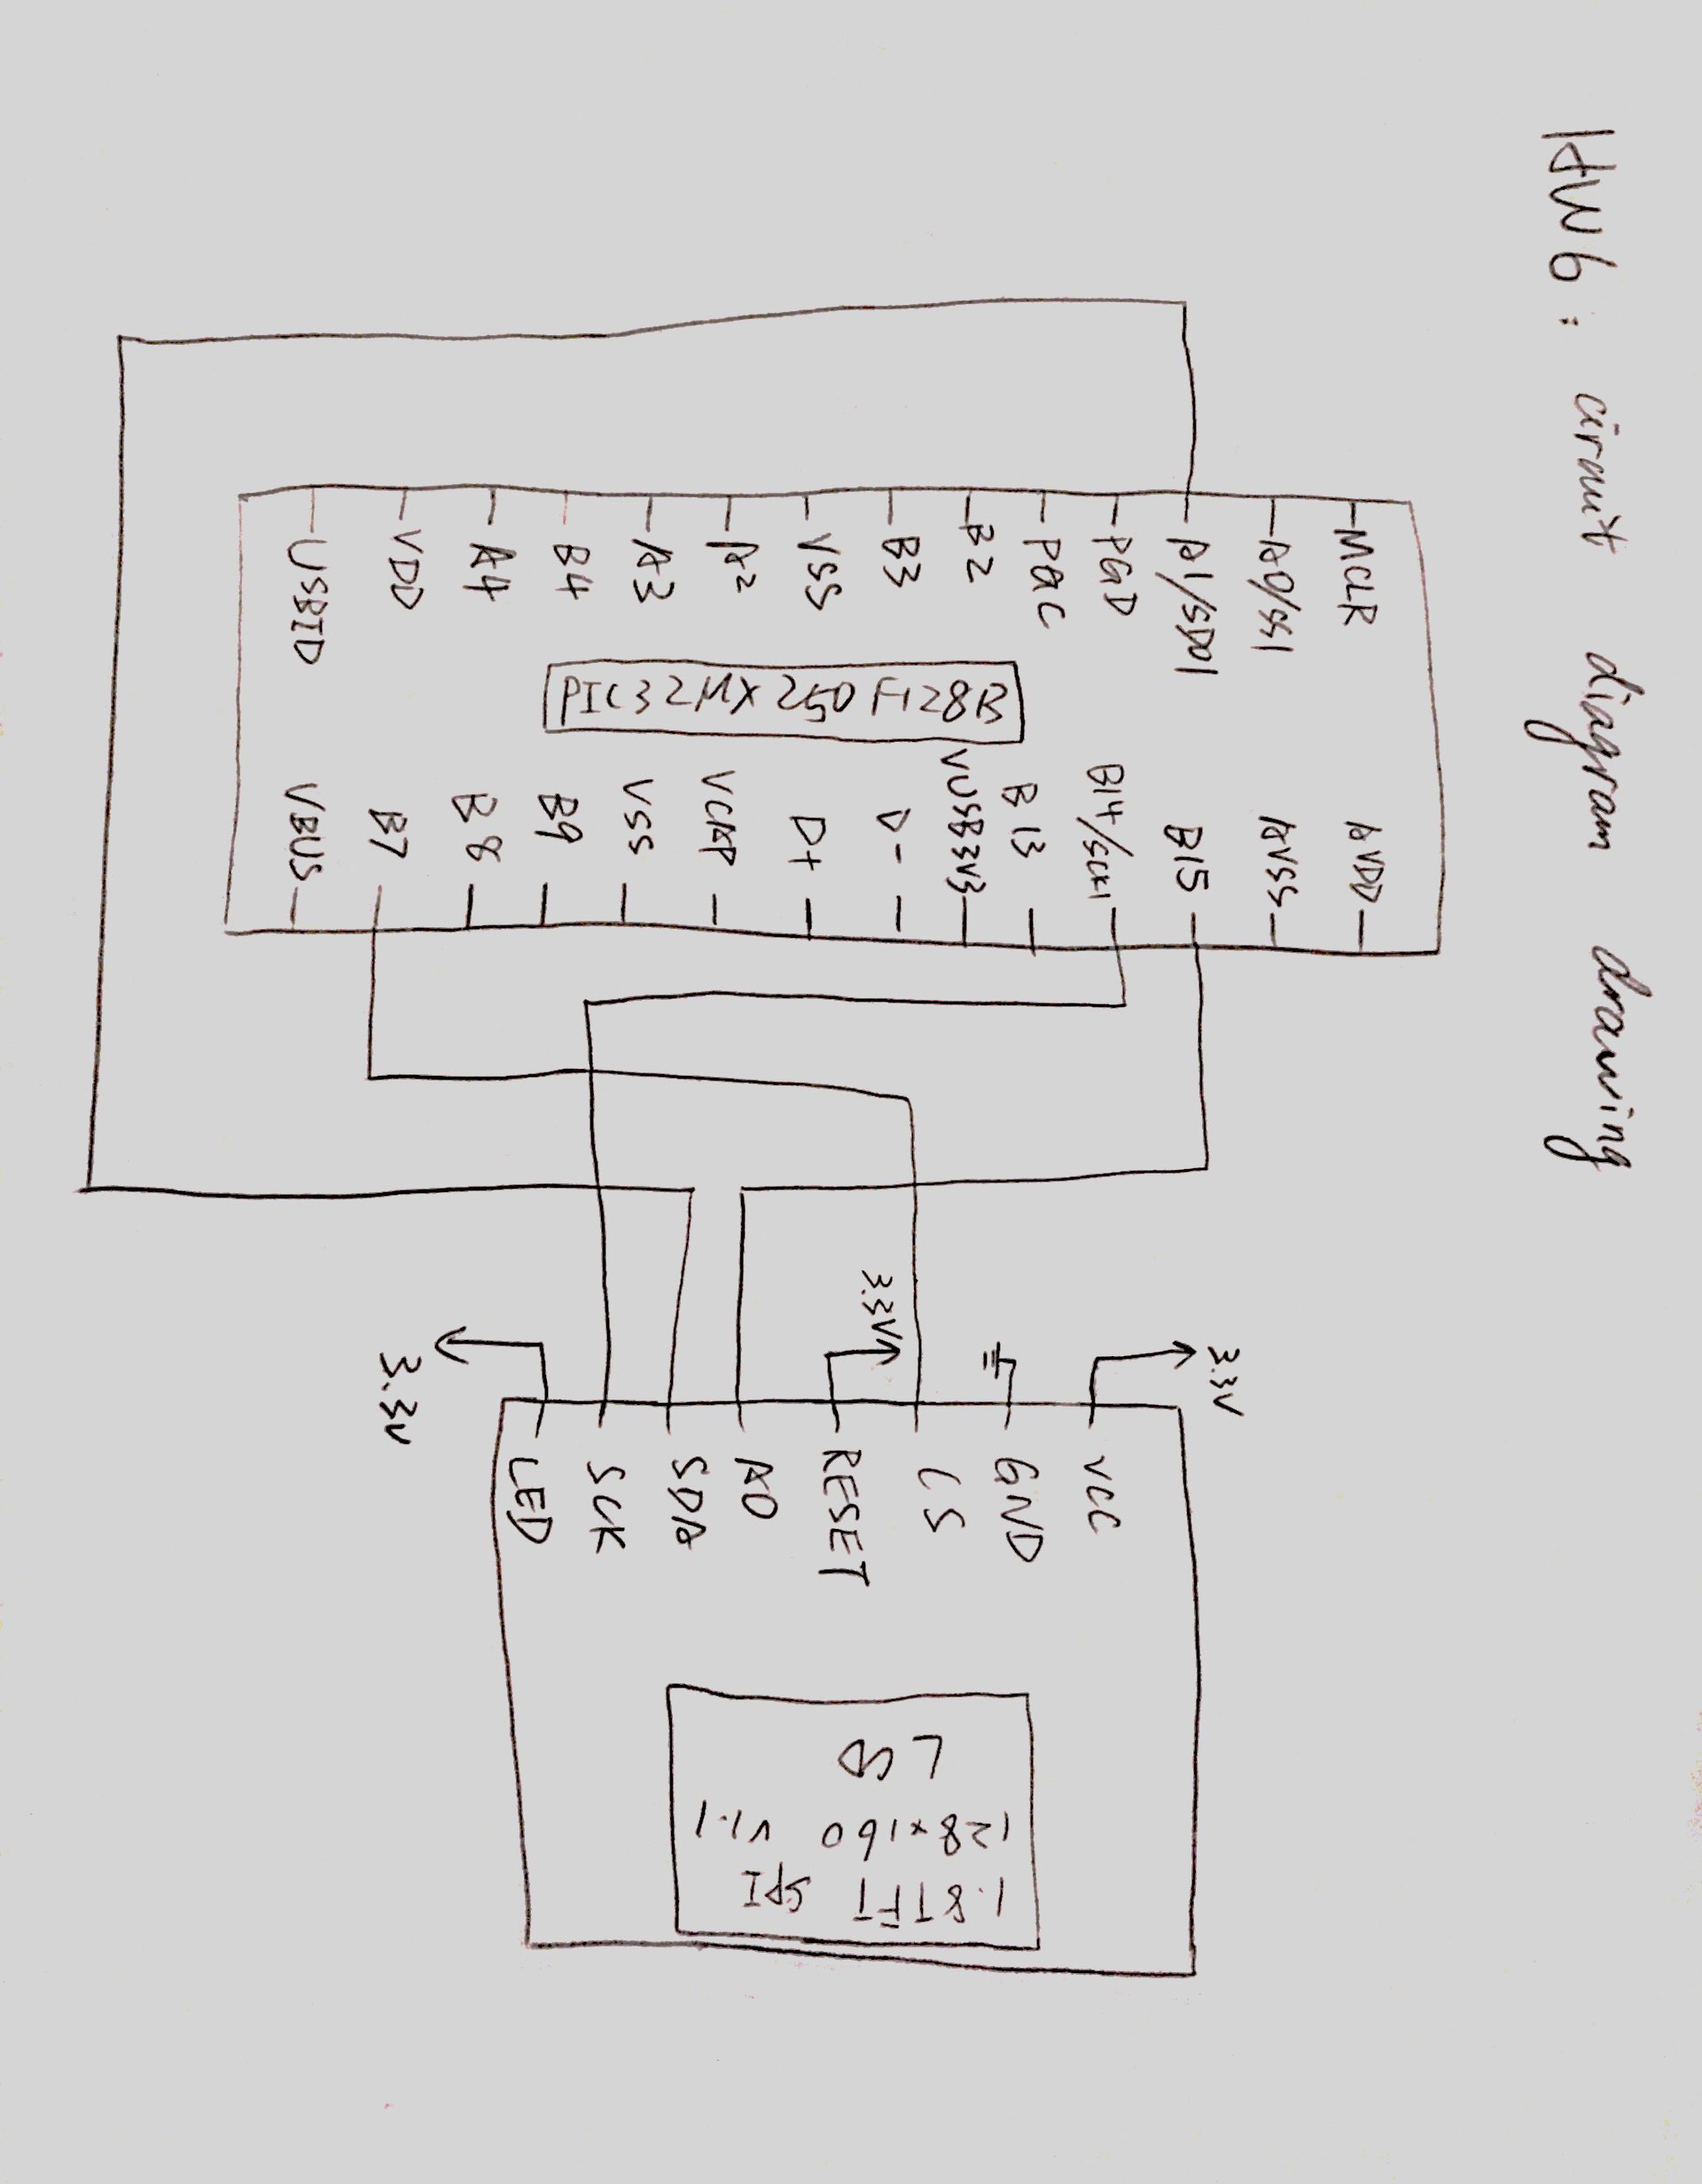 HW6: circuit diagram drawing
MCLR
A0/SS1
A1/SDO1
PGD
PGC
B2
B3
VSS
A2
A3
B4
A4
VDD
USBID
PIC32MX250F128B
AVDD
AVSS
B15
B14/SCK1
B13
VUSB3V3
D-
D+
VCAP
VSS
B9
B8
B7
VBUS
3.3V
3.3V
3.3V
VCC
GND
CS
RESET
A0
SDA
SCK
LED
1.8TFT SPI
128x160 V1.1
LCD